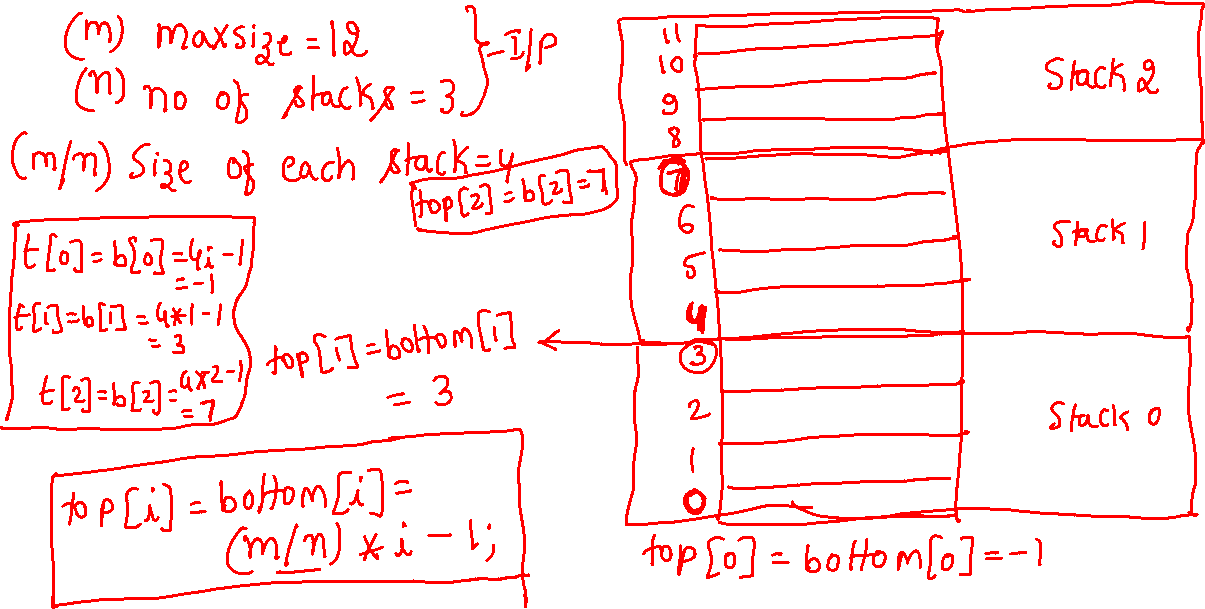 (m) maxsize = 12
(n) no of stacks = 3
} - I/P
(m/n) Size of each stack = 4
top[2] = b[2] = 7
t[0] = b[0] = 4i - 1
= -1
t[1] = b[1] = 4*1 - 1
= 3
t[2] = b[2] = 4*2 - 1
= 7
top[1] = bottom[1]
= 3
top[i] = bottom[i] =
(m/n) * i - 1;
11
10
9
8
Stack 2
7
6
5
4
Stack 1
3
2
1
0
Stack 0
top[0] = bottom[0] = -1